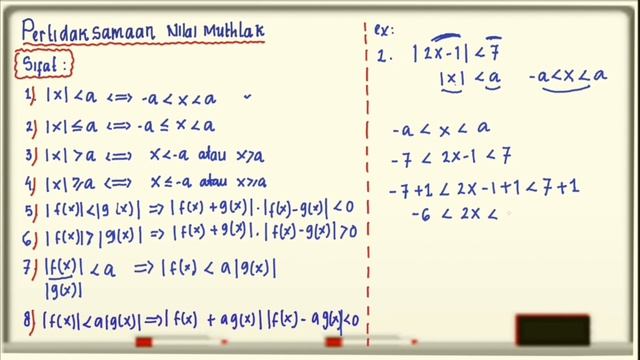 Pertidaksamaan Nilai Muthlak
Sifat :
1) |x| < a <=> -a < x < a
2) |x| ≤ a <=> -a ≤ x < a
3) |x| > a <=> x < -a atau x > a
4) |x| ≥ a <=> x ≤ -a atau x ≥ a
5) |f(x)| < |g(x)| => |f(x) + g(x)| · |f(x) - g(x)| < 0
6) |f(x)| > |g(x)| => |f(x) + g(x)| · |f(x) - g(x)| > 0
7) |f(x)| / |g(x)| < a => |f(x) < a |g(x)|
8) |f(x)| < a |g(x)| => |f(x) + a g(x)| |f(x) - a g(x)| < 0
ex:
1. |2x-1| < 7
|x| < a -a < x < a
-a < x < a
-7 < 2x-1 < 7
-7+1 < 2x-1+1 < 7+1
-6 < 2x <